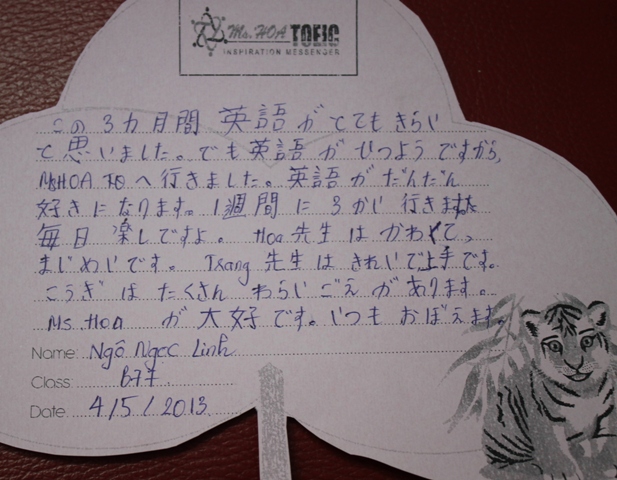 Ms. HOA TOEIC
INSPIRATION MESSENGER
この3カ月間 英語がとてもきらい
と思いました。でも英語がひつようですから、
MsHOA TOへ行きました。英語がだんだん
好きになります。1週間に3かい行きます
毎日楽しですよ。Hoa先生はかわくて、
まじめいです。Trang先生はきれいで上手です。
こうぎはたくさんわらいごえがあります。
Ms. Hoa が大好です。いつもおぼえます。
Name: Ngô Ngọc Linh
Class:
Date: 4/5/2013